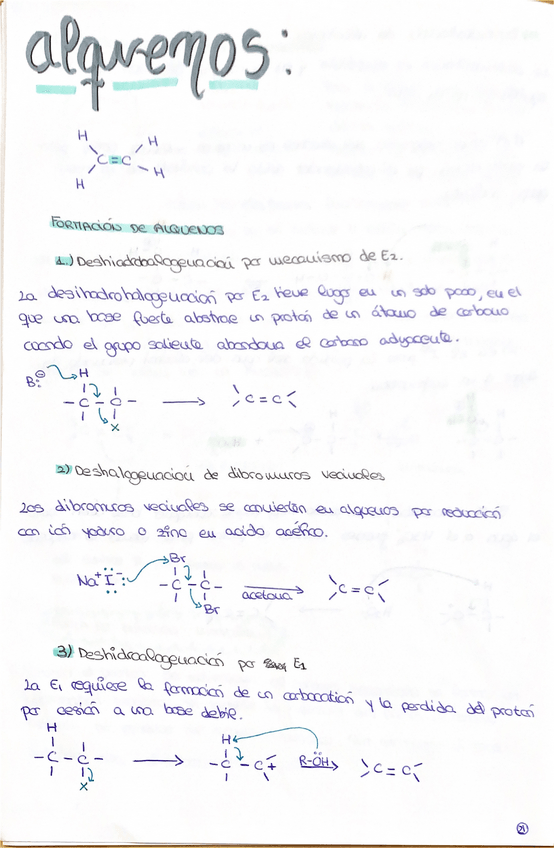 alquenos:
H H
C=C
H H
FORMACIÓN DE ALQUENOS
1.) Deshidrohalogenación por mecanismo de E2.
La desihadrohalogenación por E2 tiene lugar en un solo paso, en el
que una base fuerte abstrae un protón de un átomo de carbono
cuando el grupo saliente abandona el carbono adyacente.
B:⊖ H
-C-C- → C=C
X
2) Deshalogenación de dibromuros vecinales
Los dibromuros vecinales se convierten en alquenos por reducción
con ión yoduro o zinc en acido acético.
Br
Na⁺ I⁻ -C-C- → C=C
acetona
Br
3) Deshidroalogenación por E1
La E1 requiere la formación de un carbocatión y la perdida del protón
por cesión a una base debil.
H H
-C-C- → -C-C+ R-OH → C=C
X
21